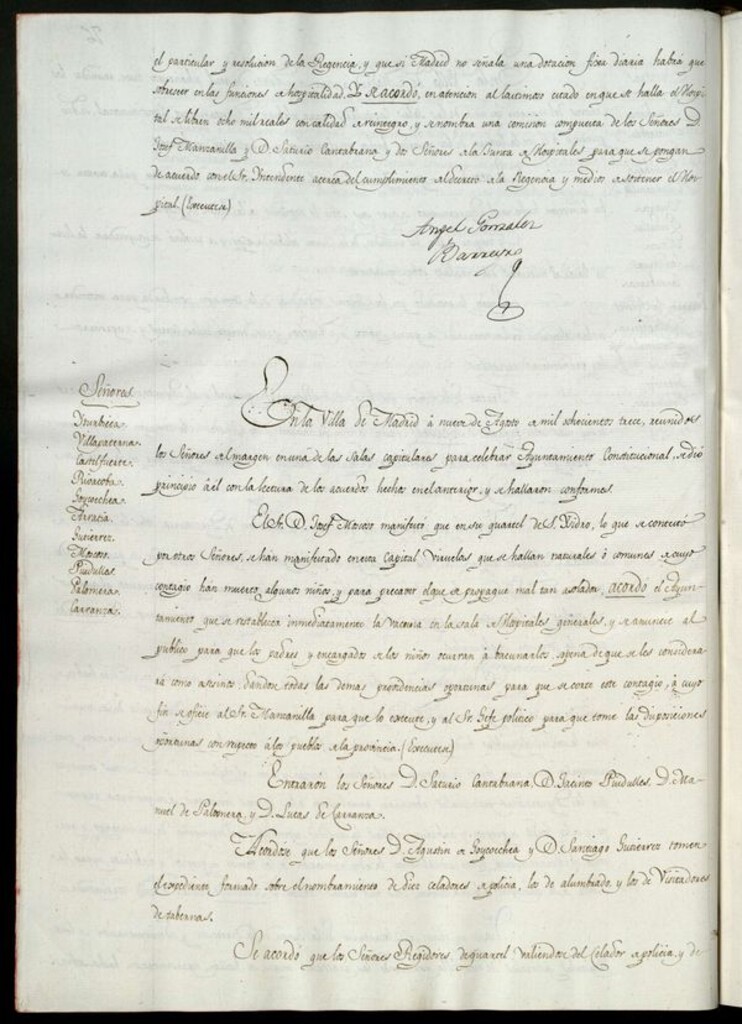 el particular y resolucion de la Regencia, y que si Madrid no señala una dotacion fixa diaria habrá que
sobreseer en las funciones de hospitalidad, Y se acordó, en atencion al lastimoso estado en que se halla el Hospi-
tal se libren ocho mil reales con calidad de reintegro, y se nombra una comision compuesta de los Señores D.
Josef Manzanilla y D. Saturio Cantabrana y dos Señores de la Junta de Hospitales para que se pongan
de acuerdo con el Sr. Intendente acerca del cumplimiento al Decreto de la Regencia y medios de sostener el Hos-
pital. (Executese)
Angel Gonzalez
Barreyro
Señores
Yturbieta.
Villapaterna.
Castelfuerte.
Rioacoba.
Goycoechea.
Arratia.
Gutierrez.
Moscoso.
Piudulles.
Palomera.
Carranza.
En la Villa de Madrid á nueve de Agosto de mil ochocientos trece, reunidos
los Señores del margen en una de las salas capitulares para celebrar Ayuntamiento Constitucional, se dió
principio á él con la lectura de los acuerdos hechos en el anterior, y se hallaron conformes.
El Sr. D. Josef Moscoso manifestó que en su quartel de S. Ysidro, lo que se contextó
por otros Señores, se han manifestado en esta Capital Viruelas que se hallan naturales ó comunes de cuyo
contagio han muerto algunos niños, y para precaver el que se propague mal tan asolador, acordó el Ayun-
tamiento que se restablezca inmediatamente la vacuna en la sala de Hospitales generales, y se anuncie al
publico para que los padres y encargados de los niños ocurran á bacunarlos, pena de que se les considera-
rá como asesinos. Dandose todas las demas providencias oportunas para que se corte este contagio, á cuyo
fin se oficie al Sr. Manzanilla para que lo execute, y al Sr. Gefe politico para que tome las disposiciones
oportunas con respecto á los pueblos de la provincia. (Executese)
Entraron los Señores D. Saturio Cantabrana, D. Jacinto Piudulles, D. Ma-
nuel de Palomera, y D. Lucas de Carranza.
Acordose que los Señores D. Agustin de Goycoechea y D. Santiago Gutierrez tomen
el expediente formado sobre el nombramiento de Diez celadores de policia, los de alumbrado, y los de Visitadores
de tabernas.
Se acordó que los Señores Regidores de quartel valiendose del Celador de policia, y de